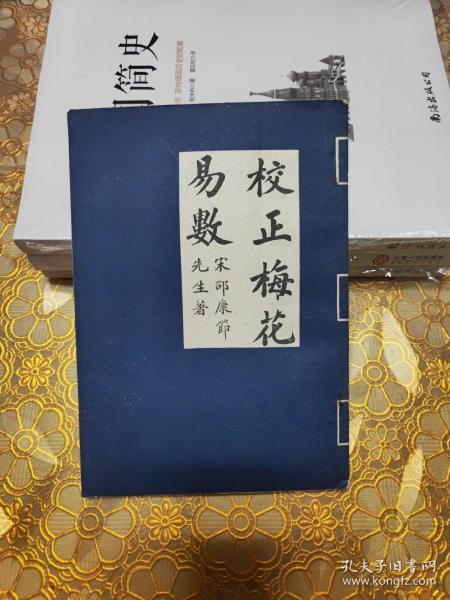 校正梅花
易數
宋邵康節
先生著
简史
南海出版公司
孔夫子旧书网
www.kongfz.com